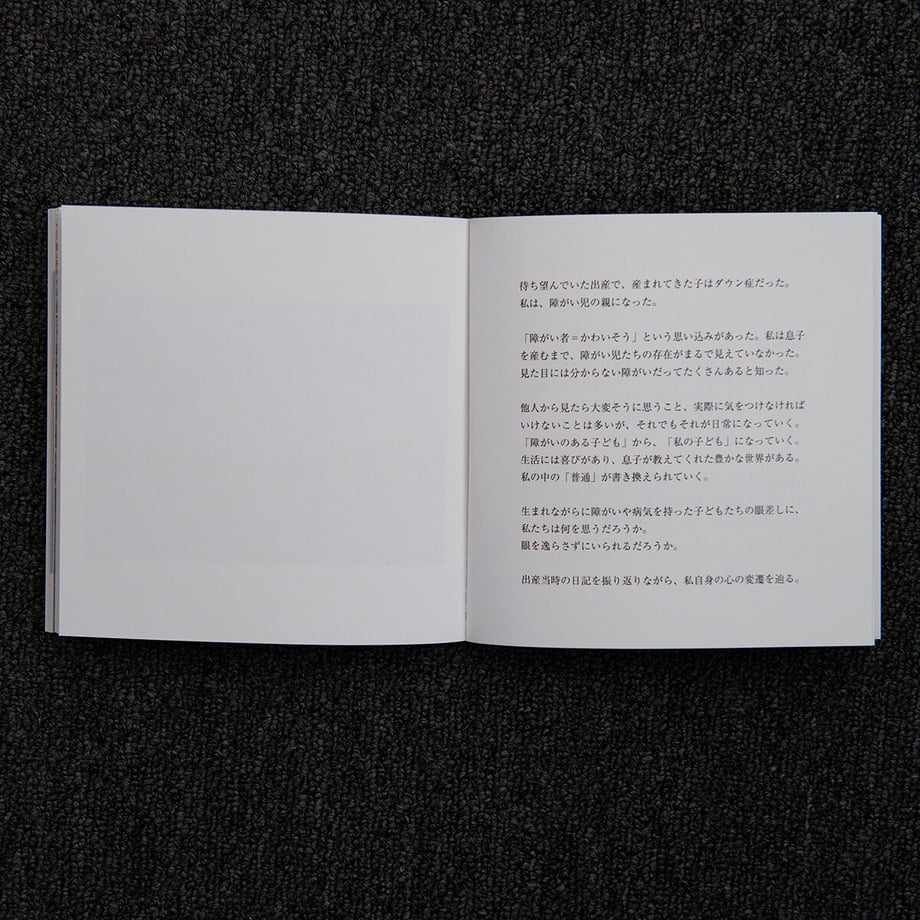 待ち望んでいた出産で、産まれてきた子はダウン症だった。
私は、障がい児の親になった。
「障がい者＝かわいそう」という思い込みがあった。私は息子
を産むまで、障がい児たちの存在がまるで見えていなかった。
見た目には分からない障がいだってたくさんあると知った。
他人から見たら大変そうに思うこと、実際に気をつけなければ
いけないことは多いが、それでもそれが日常になっていく。
「障がいのある子ども」から、「私の子ども」になっていく。
生活には喜びがあり、息子が教えてくれた豊かな世界がある。
私の中の「普通」が書き換えられていく。
生まれながらに障がいや病気を持った子どもたちの眼差しに、
私たちは何を思うだろうか。
眼を逸らさずにいられるだろうか。
出産当時の日記を振り返りながら、私自身の心の変遷を辿る。